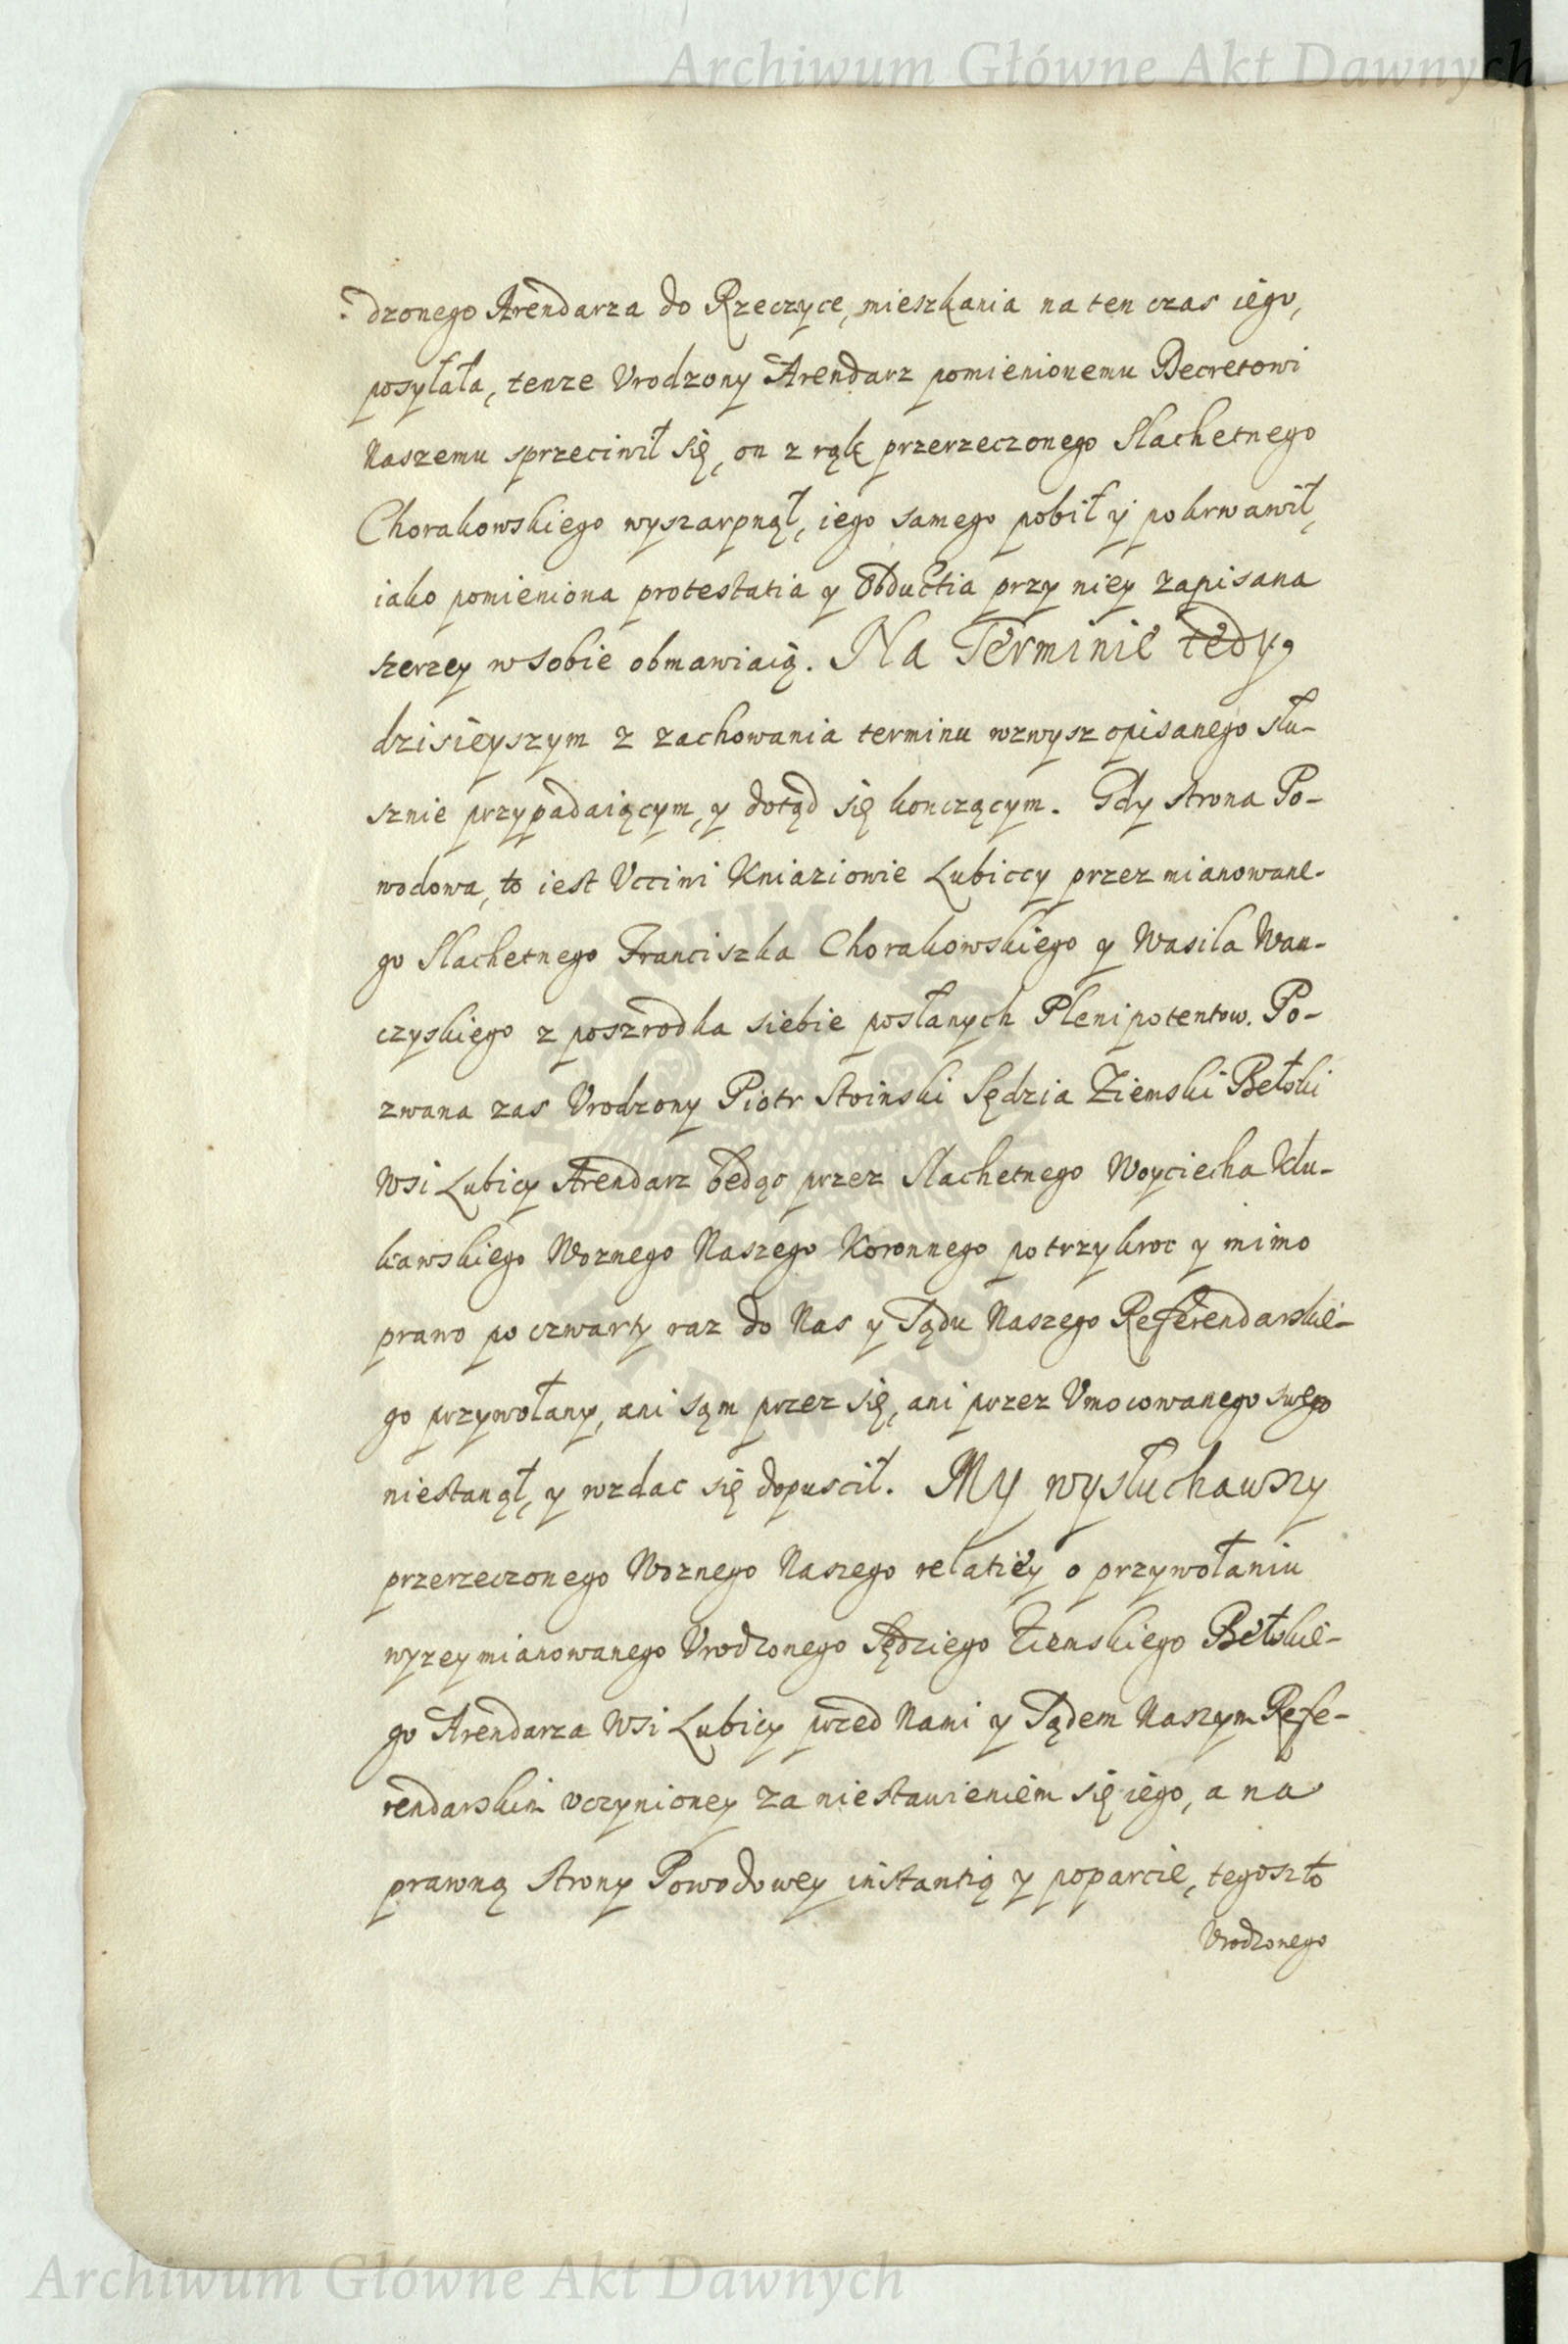 Archiwum Główne Akt Dawnych
dzonego Arendarza do Rzeczyce, mieszkania na ten czas iego,
posyłała, tenze Vrodzony Arendarz pomienionemu Decretowi
Naszemu sprzeciwił się, on z rąk przerzeczonego Slachetnego
Chorakowskiego wyszarpnął, iego samego pobił y pokrwawił,
iako pomieniona protestatia y Obductia przy niey zapisana
szerzey w sobie obmawiaią. Na Terminie tedy,
dzisieyszym z zachowania terminu wzwysz opisanego słu-
sznie przypadaiącym, y dotąd się konczącym. Gdy strona Po-
wodowa, to iest Vcciwi Kniaziowie Lubiccy przez mianowane-
go Slachetnego Franciszka Chorakowskiego y Wasila Wan-
czyskiego z poszrodka siebie posłanych Plenipotentow. Po-
zwana zas Vrodzony Piotr Stoinski Sędzia Ziemski Bełski
Wsi Lubicy Arendarz będąc przez Slachetnego Woyciecha Kłu-
kawskiego Woznego Naszego Koronnego po trzykroc y mimo
prawo po czwarty raz do Nas y Sądu Naszego Referendarskie-
go przywołany, ani sąm przez się, ani przez Vmocowanego swego
niestanął, y wzdac się dopuscił. My wysłuchawszy
przerzeczonego Woznego Naszego relatiey o przywołaniu
wyzey mianowanego Vrodzonego Sędziego Ziemskiego Bełskie-
go Arendarza Wsi Lubicy przed Nami y Sądem Naszym Refe-
rendarskim vczynioney za niestawieniem się iego, a na
prawną strony Powodowey instantią y poparcie, tegoszto
Vrodzonego
Archiwum Główne Akt Dawnych